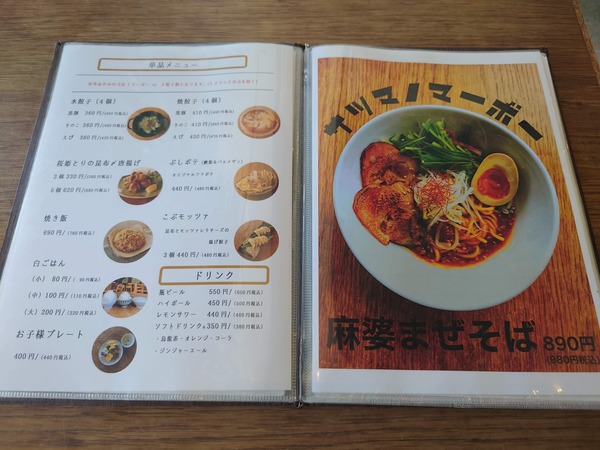 単品メニュー
水餃子（4個）
黒豚 360円/(400円税込)
きのこ 360円/(400円税込)
えび 380円/(420円税込)
焼餃子（4個）
黒豚 410円/(450円税込)
きのこ 410円/(450円税込)
えび 430円/(470円税込)
桜姫とりの昆布〆唐揚げ
3個 330円/(360円税込)
6個 620円/(680円税込)
ぶしポテ
オリジナルフリポテ
440円/(480円税込)
焼き飯
690円/(760円税込)
こぶモッツァ
昆布とモッツァレラチーズの
揚げ餃子
3個 440円/(480円税込)
白ごはん
(小) 80円/( 90円税込)
(中) 100円/(110円税込)
(大) 200円/(220円税込)
お子様プレート
400円/(440円税込)
ドリンク
瓶ビール 550円/(600円税込)
ハイボール 450円/(500円税込)
レモンサワー 440円/(480円税込)
ソフトドリンク各 350円/(380円税込)
・烏龍茶・オレンジ・コーラ
・ジンジャーエール
サツマノマーボー
麻婆まぜそば 890円
(980円税込)